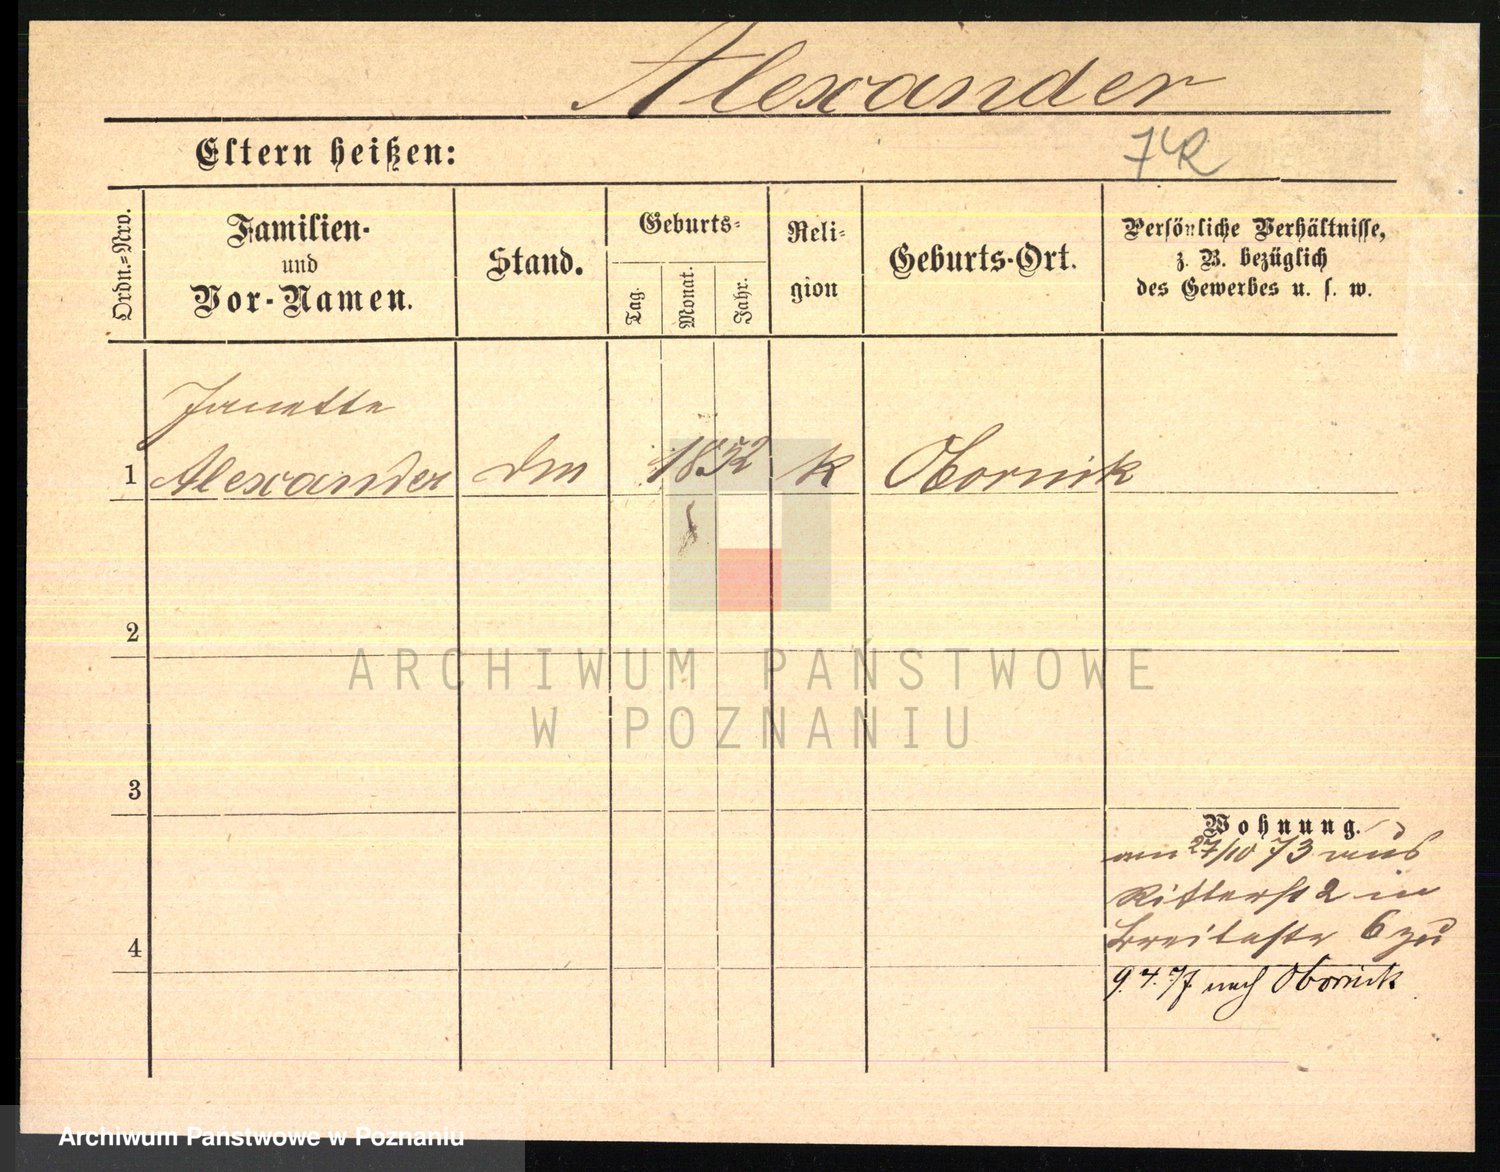 Alexander
Eltern heißen:
7 R
Ordn.=Nro.
Familien-
und
Vor-Namen.
Stand.
Geburts-
Tag.
Monat.
Jahr.
Reli-
gion
Geburts-Ort.
Persönliche Verhältnisse,
z. B. bezüglich
des Gewerbes u. s. w.
Janette
1 Alexander 1852 k Obornik
2
ARCHIWUM PAŃSTWOWE
W POZNANIU
3
Wohnung.
am 27/10 73 aus
Ritterst 2 in
Breitestr 6 zu
4
9.4.77 nach Obornick
Archiwum Państwowe w Poznaniu